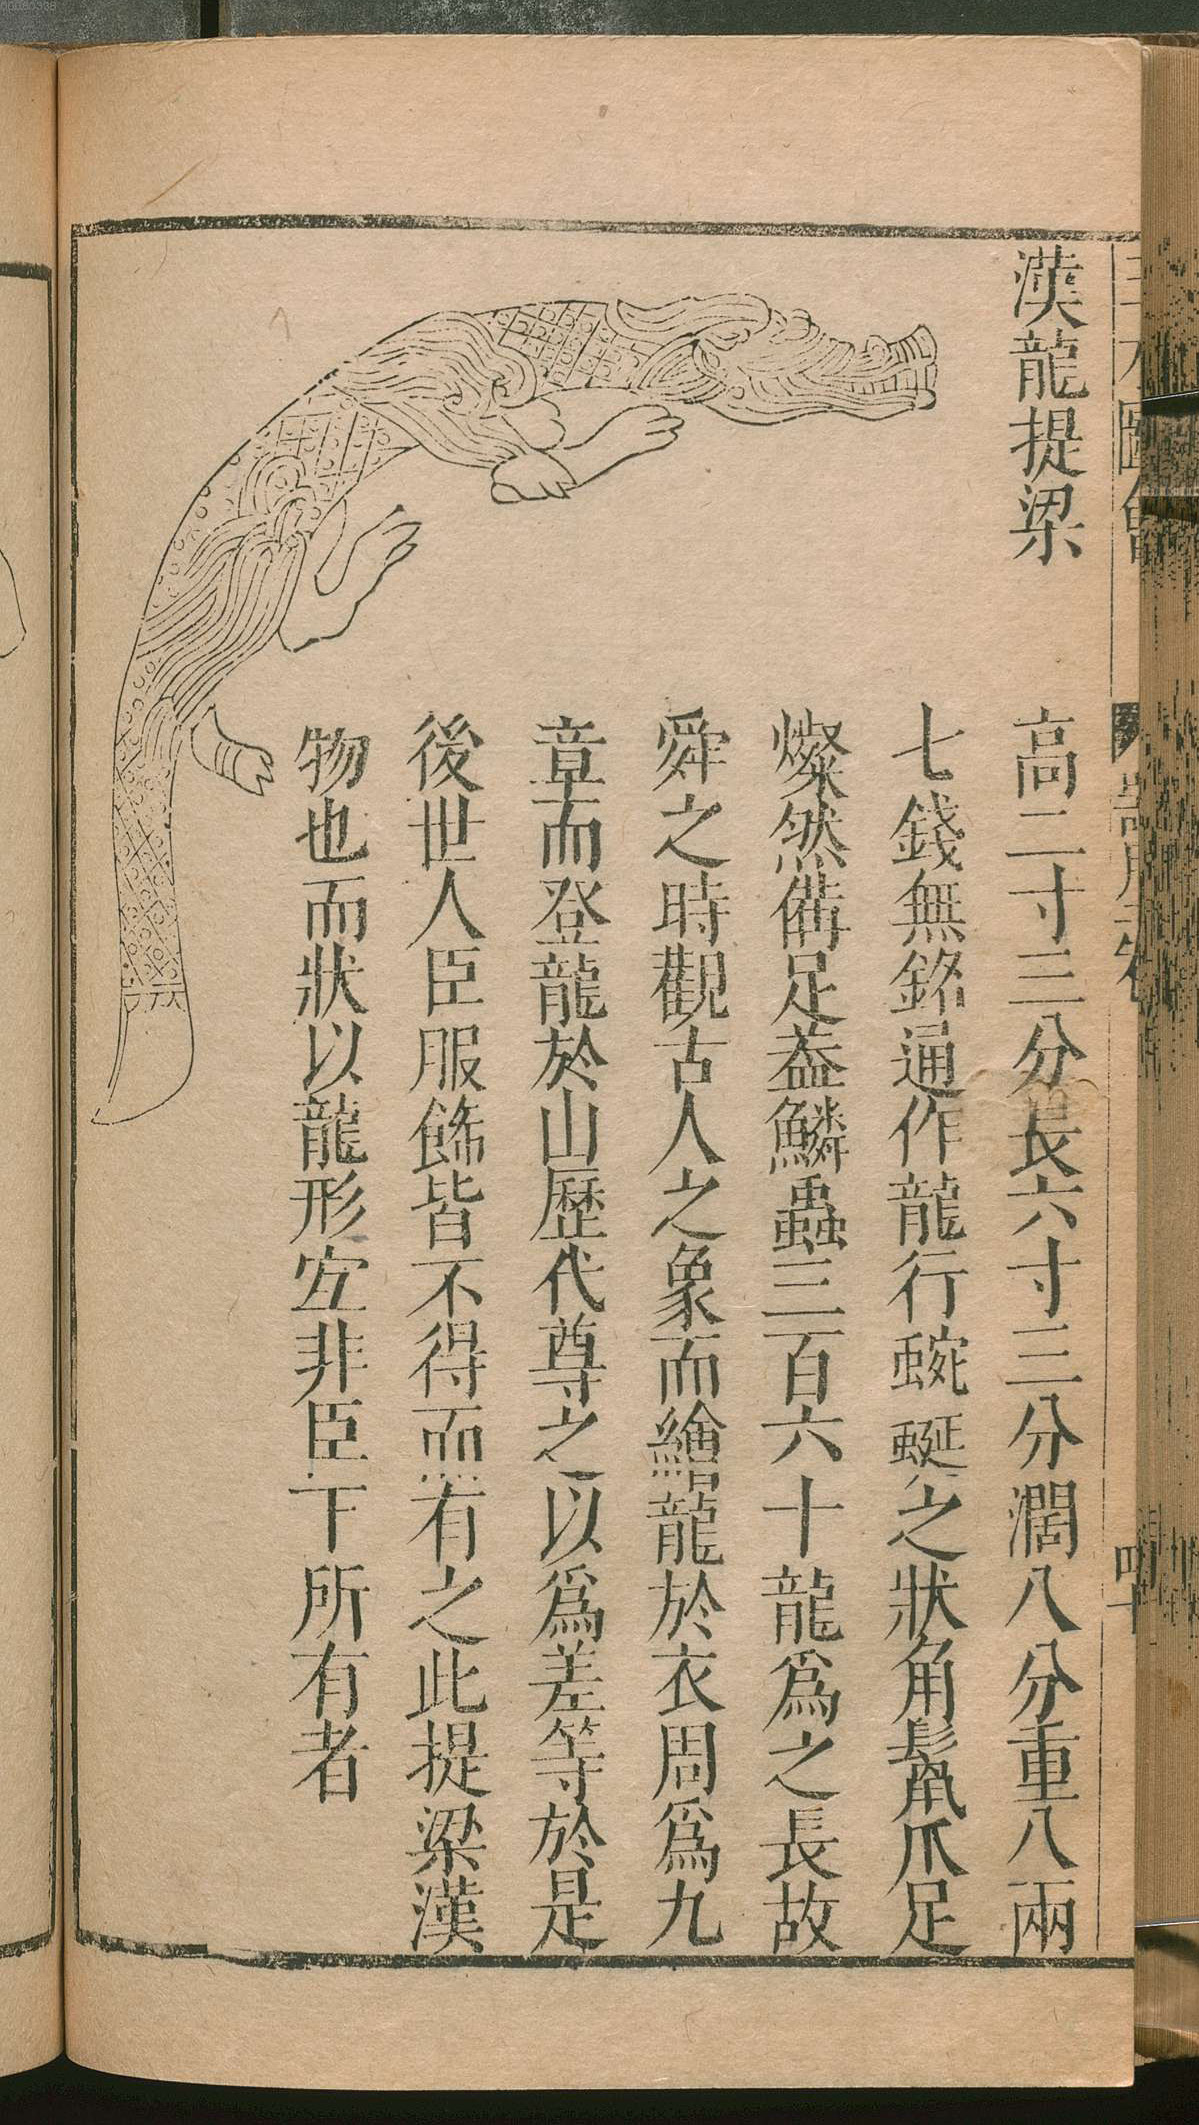 00080338
三才圖會
漢龍提梁
高二寸三分長六寸三分濶八分重八兩
七錢無銘通作龍行蜿蜒之狀角鬣爪足
燦然備足葢鱗蟲三百六十龍爲之長故
舜之時觀古人之象而繪龍於衣周爲九
章而登龍於山歷代尊之以爲差等於是
後世人臣服飾皆不得而有之此提梁漢
物也而狀以龍形宐非臣下所有者